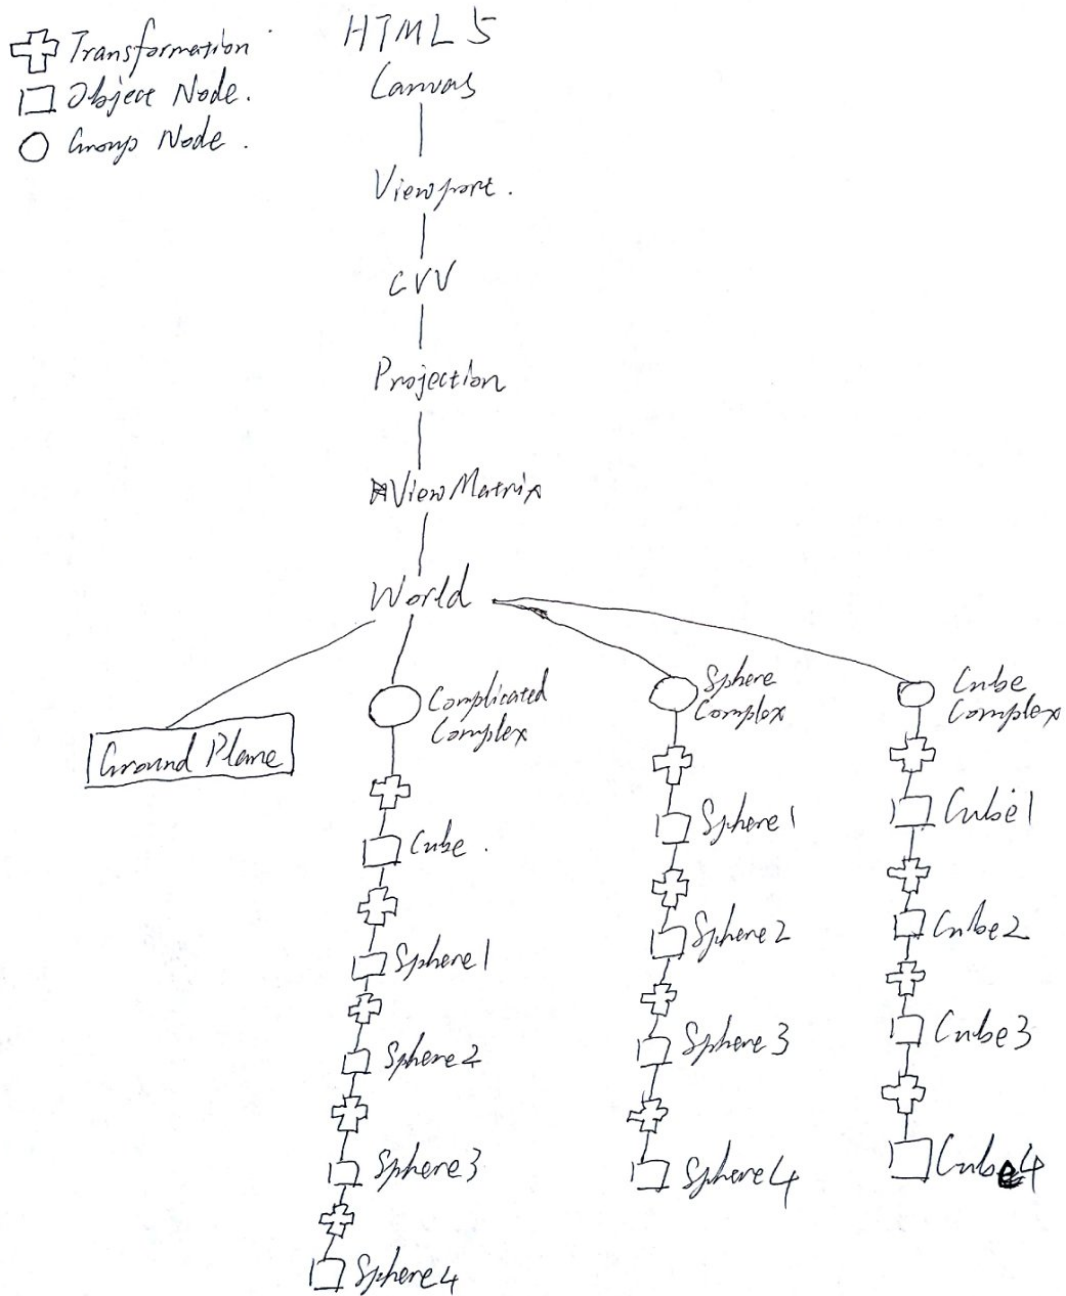 Transformation
Object Node.
Group Node.
HTML5
Canvas
Viewport.
CVV
Projection
ViewMatrix
World
Ground Plane
Complicated
Complex
Cube.
Sphere1
Sphere2
Sphere3
Sphere4
Sphere
Complex
Sphere1
Sphere2
Sphere3
Sphere4
Cube
Complex
Cube1
Cube2
Cube3
Cube4